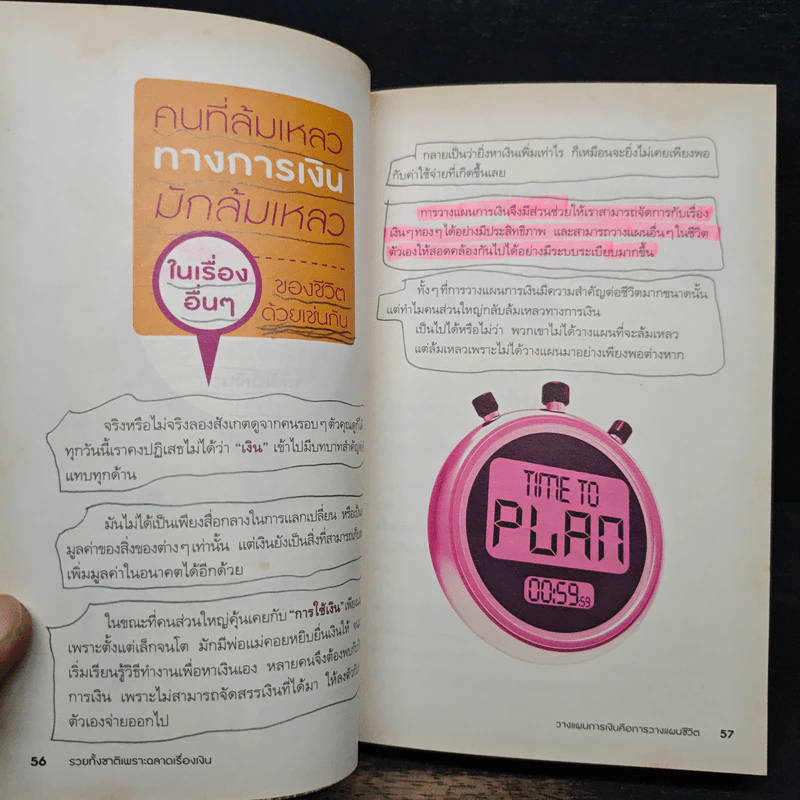 คนที่ล้มเหลว
ทางการเงิน
มักล้มเหลว
ในเรื่อง
อื่นๆ
ของชีวิต
ด้วยเช่นกัน
จริงหรือไม่จริงลองสังเกตดูจากคนรอบๆตัวคุณดูก็ได้
ทุกวันนี้เราคงปฏิเสธไม่ได้ว่า “เงิน” เข้าไปมีบทบาทสำคัญ
แทบทุกด้าน
มันไม่ได้เป็นเพียงสื่อกลางในการแลกเปลี่ยน หรือเป็น
มูลค่าของสิ่งของต่างๆเท่านั้น แต่เงินยังเป็นสิ่งที่สามารถ
เพิ่มมูลค่าในอนาคตได้อีกด้วย
ในขณะที่คนส่วนใหญ่คุ้นเคยกับ “การใช้เงิน”
เพราะตั้งแต่เล็กจนโต มักมีพ่อแม่คอยหยิบยื่นเงินให้
เริ่มเรียนรู้วิธีทำงานเพื่อหาเงินเอง หลายคนจึงต้อง
การเงิน เพราะไม่สามารถจัดสรรเงินที่ได้มา ให้ลงตัว
ตัวเองจ่ายออกไป
56 รวยทั้งชาติเพราะฉลาดเรื่องเงิน
กลายเป็นว่ายิ่งหาเงินเพิ่มเท่าไร ก็เหมือนจะยิ่งไม่เคยเพียงพอ
กับค่าใช้จ่ายที่เกิดขึ้นเลย
การวางแผนการเงินจึงมีส่วนช่วยให้เราสามารถจัดการกับเรื่อง
เงินๆทองๆได้อย่างมีประสิทธิภาพ และสามารถวางแผนอื่นๆในชีวิต
ตัวเองให้สอดคล้องกันไปได้อย่างมีระบบระเบียบมากขึ้น
ทั้งๆที่การวางแผนการเงินมีความสำคัญต่อชีวิตมากขนาดนั้น
แต่ทำไมคนส่วนใหญ่กลับล้มเหลวทางการเงิน
เป็นไปได้หรือไม่ว่า พวกเขาไม่ได้วางแผนที่จะล้มเหลว
แต่ล้มเหลวเพราะไม่ได้วางแผนมาอย่างเพียงพอต่างหาก
TIME TO
PLAN
00:59:59
วางแผนการเงินคือการวางแผนชีวิต 57